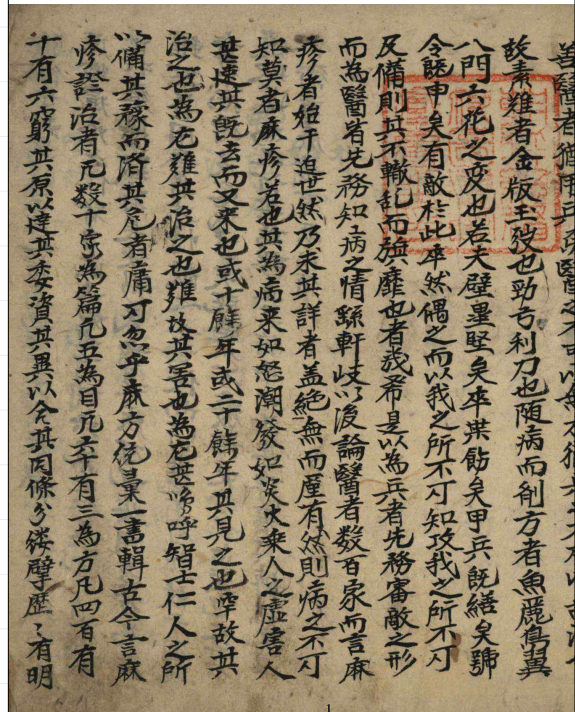 善醫者猶用兵
故素難者金版玉弢也勁弓利刀也随病而制方者魚麗鳥翼
八門六花之変也若夫壁塁堅矣卒某飭矣甲兵既繕矣號
令既申矣有敵於此卒然偶之而以我之所不可知攻我之所不可
及備則其不轍乱而旗靡也者幾希是以為兵者先務審敵之形
而為醫者先務知病之情繇軒岐以後論醫者数百家而言麻
疹者始于迫世然乃未其詳者盖絶無而厪有然則病之不可
知莫者麻疹若也其為病来如怒潮發如炎火乗人之虚害人
甚速其既去而又来也或十餘年或二十餘年其見之也罕故其
治之也為尤難其治之也難故其害也為尤甚嗚呼智士仁人之所
以備其稼而済其危者庸可忽乎麻方統彙一書輯古今言麻
疹證治者凡数十家為篇凡五為目凡六十有三為方凡四百有
十有六窮其原以達其委資其異以合其同條分縷擘歴〻有明
1